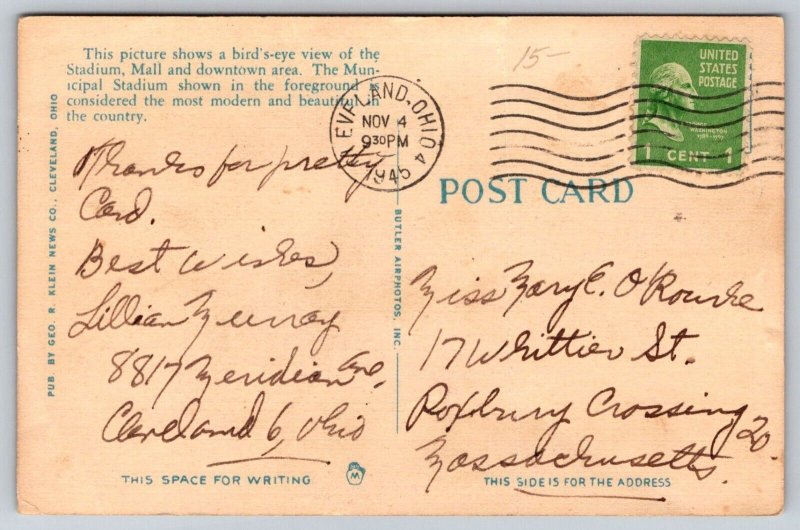 This picture shows a bird's-eye view of the
Stadium, Mall and downtown area. The Mun-
icipal Stadium shown in the foreground is
considered the most modern and beautiful in
the country.
Thanks for pretty
Card.
Best Wishes,
Lillian Murray
8817 Meridian Ave.
Cleveland 6, Ohio
THIS SPACE FOR WRITING
PUB. BY GEO. R. KLEIN NEWS CO., CLEVELAND, OHIO
BUTLER AIRPHOTOS, INC.
CLEVELAND, OHIO 4
NOV 4
9 30 PM
15-
UNITED
STATES
POSTAGE
GEORGE
WASHINGTON
1789-1797
1 CENT 1
POST CARD
Miss Mary E. O'Rourke
17 Whittier St.
Roxbury Crossing 20
Massachusetts.
THIS SIDE IS FOR THE ADDRESS